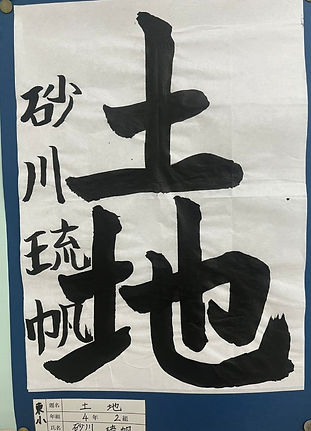 土地
砂川琉帆
東小
題名 土地
年組 4年 2組
氏名 砂川 琉帆